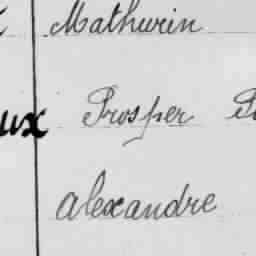 Mathurin
Prosper
alexandre